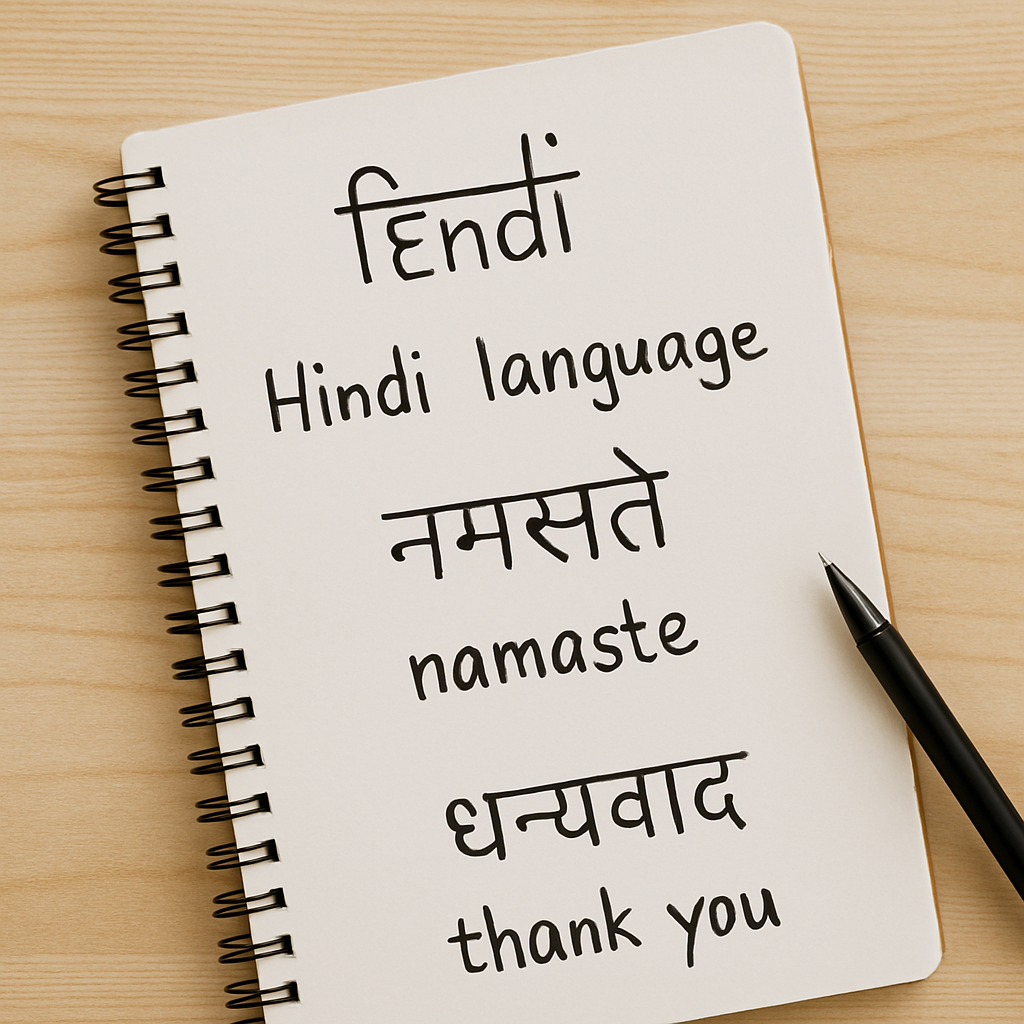 Hindi language
नमसते
namaste
धन्यवाद
thank you